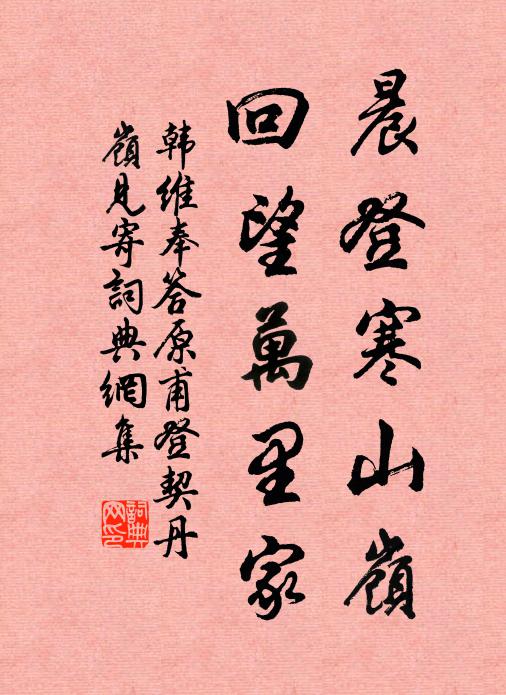 晨登寒山嶺
回望萬里家
韩維奉答原甫登契丹
嶺見寄詞典網集
詞典
网印